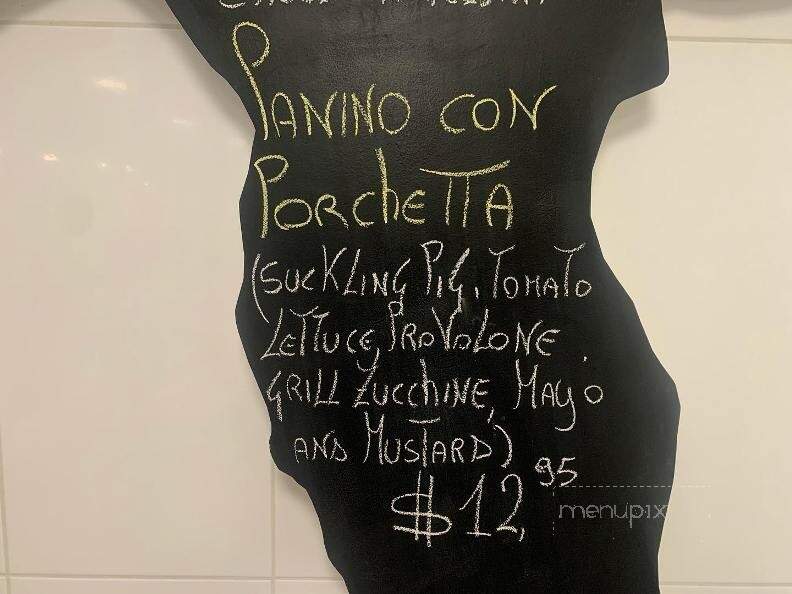 PANINO CON
PORCHETTA
(SUCKLING PIG, TOMATO
LETTUCE, PROVOLONE,
GRILL ZUCCHINE, MAYO
AND MUSTARD)
$12,95
menupix